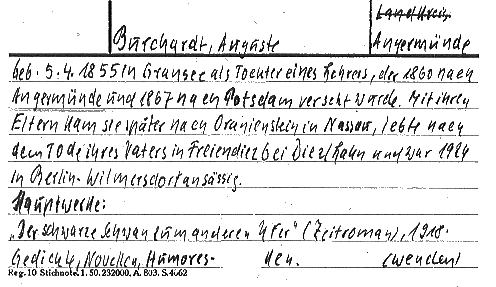 Landkreis
Burchardt, Auguste Angermünde
geb. 5.4.1855 in Gransee als Tochter eines Lehrers, der 1860 nach
Angermünde und 1867 nach Potsdam versetzt wurde. Mit ihren
Eltern kam sie später nach Oranienstein in Nassau, lebte nach
dem Tode ihres Vaters in Freiendiez bei Diez/Lahn und war 1924
in Berlin-Wilmersdorf ansässig.
Hauptwerke:
"Der schwarze Schwan zum anderen Ufer" (Zeitroman), 1918.
Gedichte, Novellen, Humores- ken. (wenden)
Reg. 10 Stichnote. 1. 50. 232000. A. 803. S. 4662